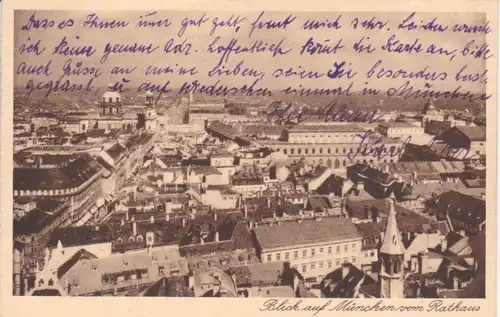 Dass es Ihnen imer gut geht, freut mich sehr. Leider wusste
ich Keine genaue Adr. Hoffentlich Komt die Karte an, bitte
auch Grüsse an meine lieben, seien Sie besonders herzl.
gegrüsst, u. auf ein mal in München
Ihre
Blick auf München vom Rathaus